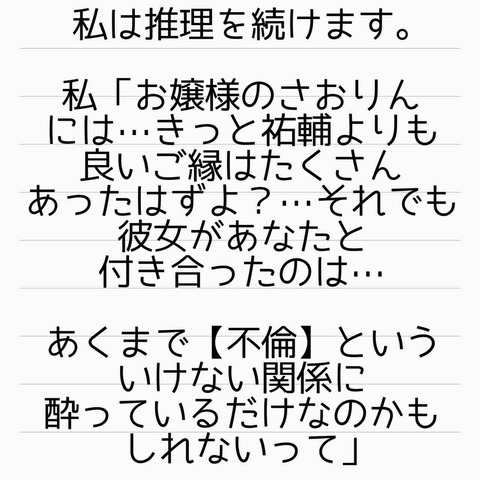 私は推理を続けます。
私「お嬢様のさおりん
には…きっと祐輔よりも
良いご縁はたくさん
あったはずよ？…それでも
彼女があなたと
付き合ったのは…
あくまで【不倫】という
いけない関係に
酔っているだけなのかも
しれないって」